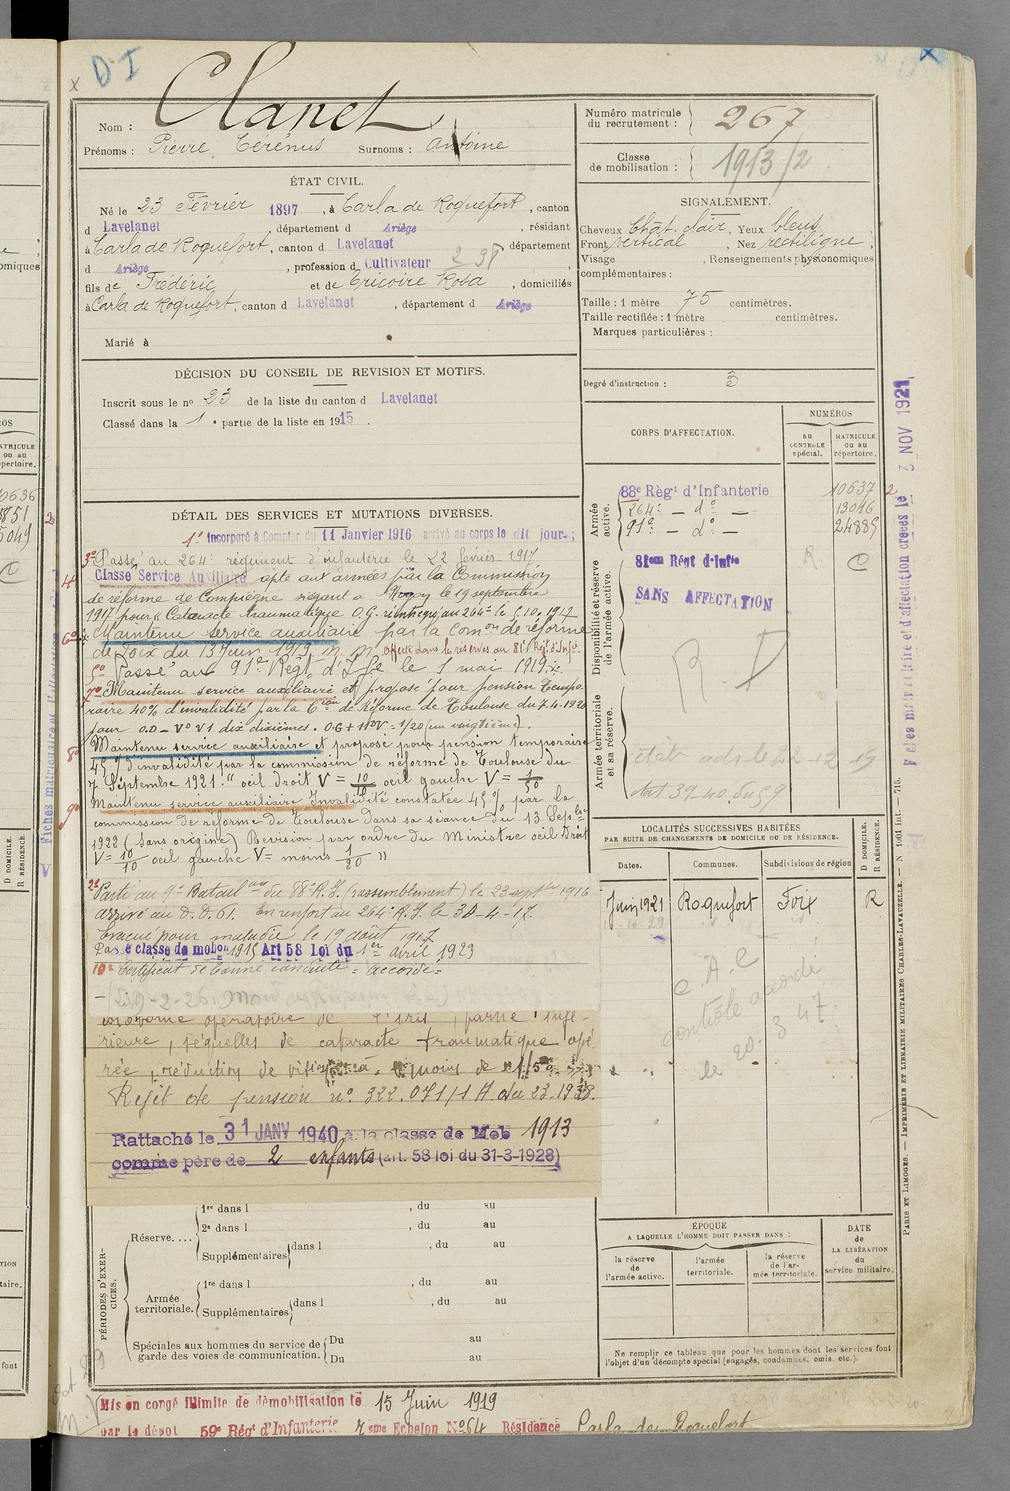 D I
Clanet
Nom :
Prénoms : Pierre Térénus Surnoms : Antoine
Numéro matricule du recrutement : 267
Classe de mobilisation : 1913/2
ÉTAT CIVIL.
Né le 23 Février 1897, à Carla de Roquefort, canton
d Lavelanet, département d Ariège, résidant
à Carla de Roquefort, canton d Lavelanet, département
d Ariège, profession d Cultivateur
fils de Frédéric et de Ericoire Rosa, domiciliés
à Carla de Roquefort, canton d Lavelanet, département d Ariège
Marié à
SIGNALEMENT.
Cheveux Chât. clair, Yeux bleus
Front vertical, Nez rectiligne,
Visage , Renseignements physionomiques
complémentaires :
Taille : 1 mètre 75 centimètres.
Taille rectifiée : 1 mètre centimètres.
Marques particulières :
Degré d'instruction : 3
DÉCISION DU CONSEIL DE REVISION ET MOTIFS.
Inscrit sous le no 23 de la liste du canton d Lavelanet
Classé dans la 1e partie de la liste en 1915.
CORPS D'AFFECTATION.
NUMÉROS
AU CONTROLE spécial.
MATRICULE OU AU répertoire.
Armée active.
88e Régt d'Infanterie 10637
264e - do - 13046
91e - do - 24889
Disponibilité et réserve de l'armée active.
81em Régt d'Infie R. C
SANS AFFECTATION
R D
Armée territoriale et sa réserve.
DÉTAIL DES SERVICES ET MUTATIONS DIVERSES.
1o Incorporé à Compter du 11 Janvier 1916 arrivé au corps le dit jour;
3o Passé au 264e régiment d'infanterie le 22 février 1917
4o Classé Service Auxiliaire apte aux armées par la Commission
de réforme de Compiègne siégeant à Noyon le 19 septembre
1917 pour "Cataracte traumatique O.G. réintégré au 264e le 5.10.1917
6o Maintenu service auxiliaire par la Comon de réforme
de Foix du 13 Juin 1919. Affecté dans les réserves au 81e Régt d'Infie.
5o Passé au 91e Régt d'Ife le 1 mai 1919.
7o Maintenu service auxiliaire et proposé pour pension tempo-
raire 40% d'invalidité par la Cion de Réforme de Toulouse du 7-4-1920
pour O.D - Vo V1 dix dixièmes. OG + V = 1/20 (un vingtième).
8o Maintenu service auxiliaire et proposé pour pension temporaire
45% d'invalidité par la commission de réforme de Toulouse du
7 Septembre 1921. "oeil droit V = 10/10 oeil gauche V = 1/50
9o Maintenu service auxiliaire Invalidité constatée 45% par la
commission de réforme de Toulouse dans sa séance du 13 Septbre
1922 (sans origine) Revision par ordre du Ministre oeil droit
V = 10/10 oeil gauche V = moins 1/20 "
2o Parti au 9e Bataillon du 88e R.I. (rassemblement) le 23 septbre 1916
arrivé au D.D. 61. En renfort au 264e R.I. le 30-4-17.
Evacué pour maladie le 19 août 1917
Passé classe de mobon 1915 Art 58 Loi du 1er avril 1923
10o Certificat de bonne conduite = accordé =
opératoire de l'iris, partie infé-
rieure, séquelles de cataracte traumatique opé-
rée, réduction de vision à moins de 1/50
Rejet de pension no. 322.071/1 A du 23.1938.
Rattaché le 31 JANV 1940 à la classe de Mob 1913
comme père de 2 enfants (art. 58 loi du 31-3-1928)
LOCALITÉS SUCCESSIVES HABITÉES
PAR SUITE DE CHANGEMENTS DE DOMICILE OU DE RÉSIDENCE.
Dates. Communes. Subdivisions de région D DOMICILE. R RÉSIDENCE.
Juin 1921 Roquefort Foix R
C.A.C
contrôle accordé
le 20. 3 47
ÉPOQUE
A LAQUELLE L'HOMME DOIT PASSER DANS :
la réserve de l'armée active.
l'armée territoriale.
la réserve de l'armée territoriale.
DATE de LA LIBÉRATION du service militaire.
Ne remplir ce tableau que pour les hommes dont les services font
l'objet d'un décompte spécial (engagés, condamnés, omis, etc.).
PÉRIODES D'EXERCICES.
Réserve....
1re dans l , du au
2e dans l , du au
Supplémentaires dans l , du au
Armée territoriale.
1re dans l , du au
Supplémentaires dans l , du au
Spéciales aux hommes du service de
garde des voies de communication.
Du au
Du au
Mis en congé illimité de démobilisation le 15 Juin 1919
par le dépôt 59e Régt d'Infanterie 7eme Echelon No 64 Résidence Carla de Roquefort
PARIS ET LIMOGES. — IMPRIMERIE ET LIBRAIRIE MILITAIRES CHARLES-LAVAUZELLE. — N 1001 int. — 715.
Fiches matriculaire et d'affectation créées le 3 NOV 1921